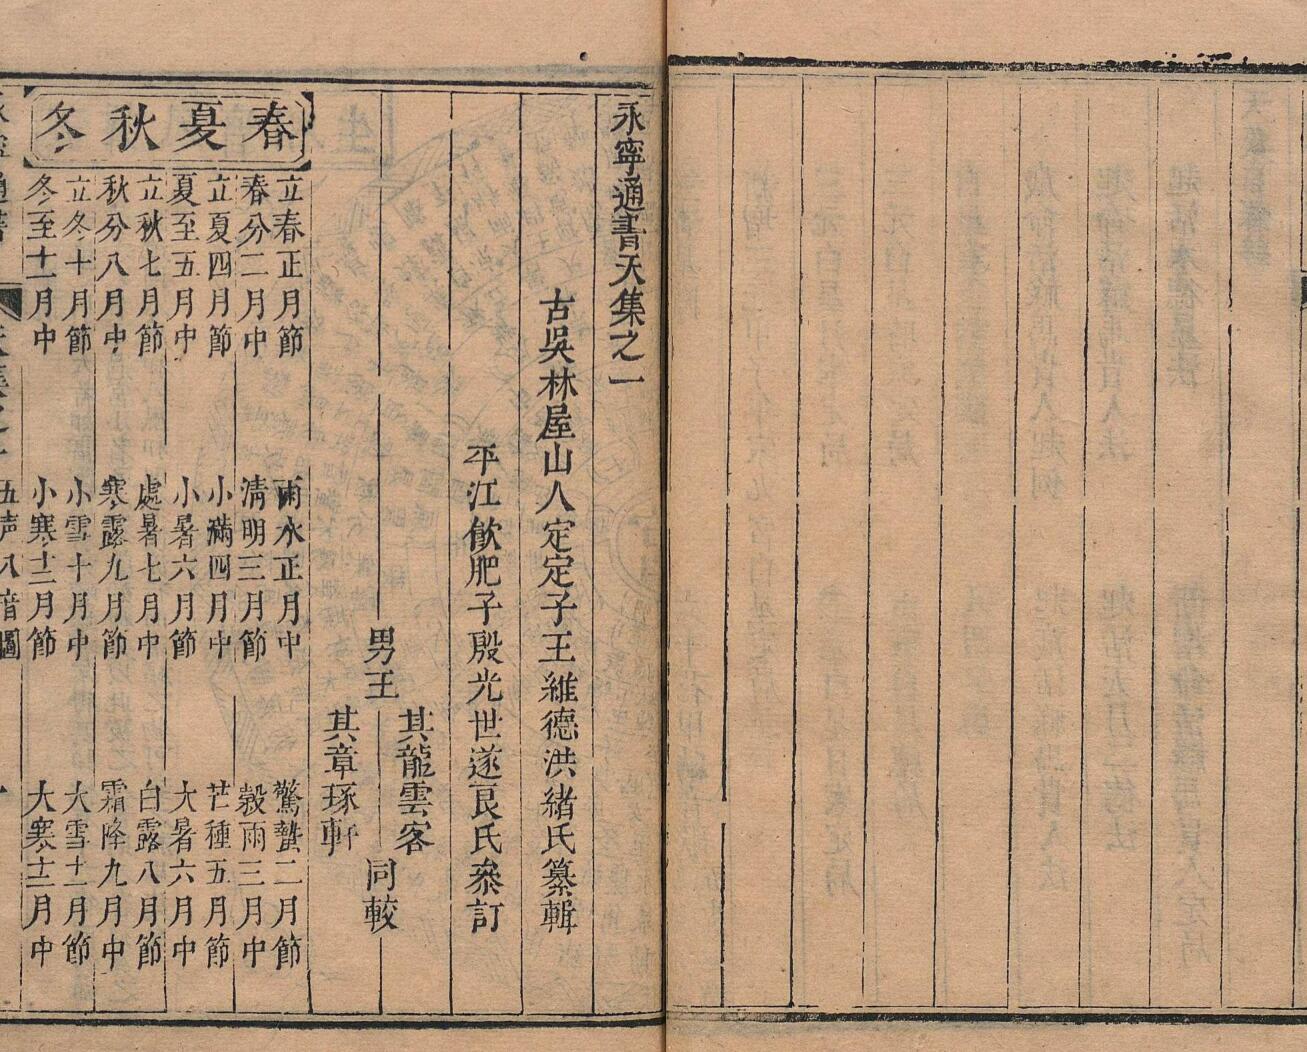 永寧通書天集之一
古吳林屋山人定定子王維德洪緒氏纂輯
平江飲肥子殷光世遂良氏叅訂
男王
其龍雲客
其章琢軒
同較
春夏秋冬
立春正月節 雨水正月中 驚蟄二月節
春分二月中 清明三月節 穀雨三月中
立夏四月節 小滿四月中 芒種五月節
夏至五月中 小暑六月節 大暑六月中
立秋七月節 處暑七月中 白露八月節
秋分八月中 寒露九月節 霜降九月中
立冬十月節 小雪十月中 大雪十一月節
冬至十一月中 小寒十二月節 大寒十二月中
五声八音圖